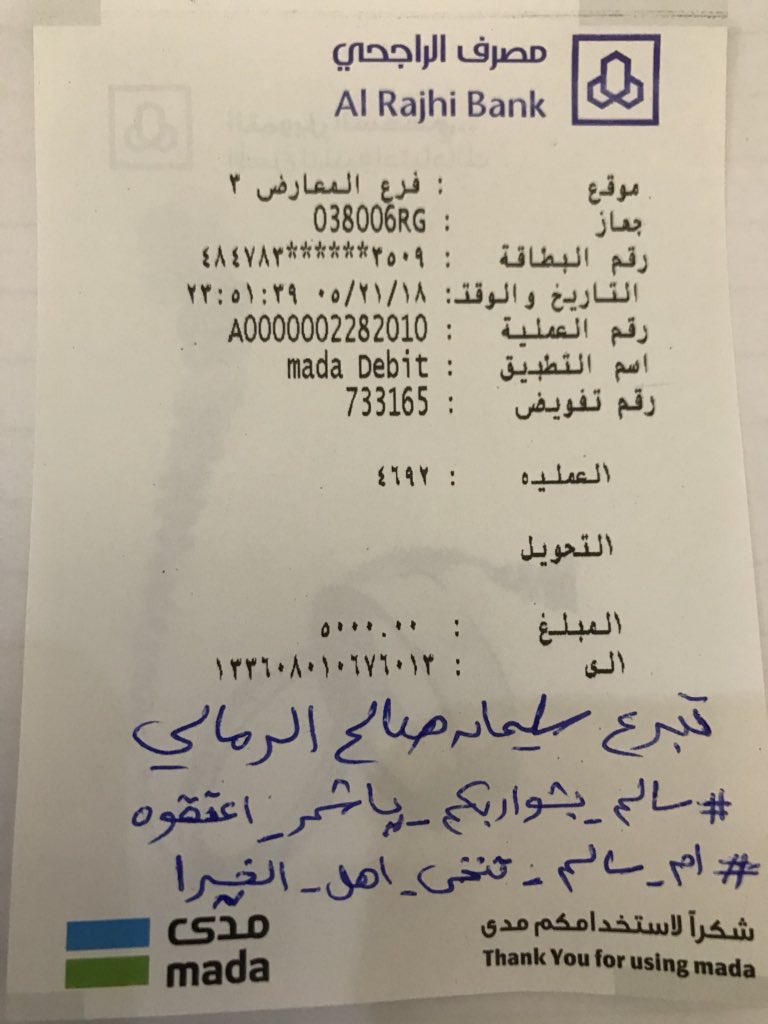 مصرف الراجحي
Al Rajhi Bank
موقع : فرع المعارض ٣
جهاز : 038006RG
رقم البطاقة : ٤٨٤٧٨٣******٣٥٠٩
التاريخ والوقت: ٠٥/٢١/١٨ ٢٣:٥١:٣٩
رقم العملية : A0000002282010
اسم التطبيق : mada Debit
رقم تفويض : 733165
العمليه : ٤٦٩٢
التحويل
المبلغ : ٥٠٠٠.٠٠
الى : ١٣٣٦٠٨٠١٠٦٧٦٠١٣
تبرع سليمان صالح الرمالي
#سالم_بشواربكم_ياشمر_اعتقوه
#ام_سالم_تنخى_اهل_الغيرا
شكراً لاستخدامكم مدى
Thank You for using mada
مدى
mada